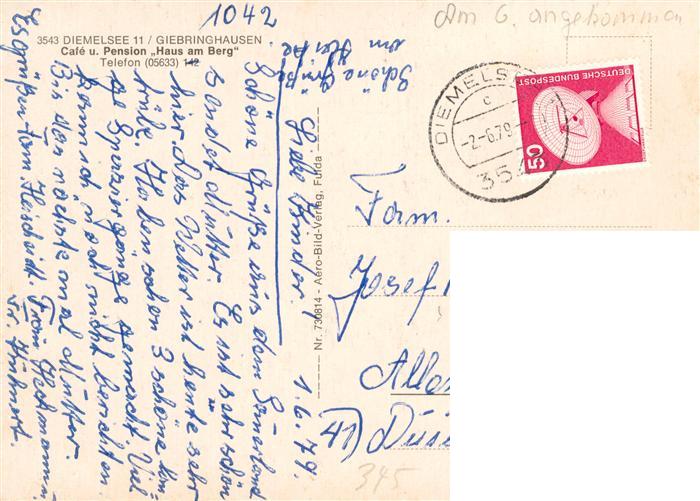 1042
Am 6. angekommen
3543 DIEMELSEE 11 / GIEBRINGHAUSEN
Café u. Pension „Haus am Berg"
Telefon (05633) 142
1.6.79.
Liebe Kinder!
Schöne Grüße aus dem Sauerland
sendet Mutter. Es ist sehr schön
hier. Das Wetter ist heute sehr
trübe. Haben schon 3 schöne lan-
ge Spaziergänge gemacht. Viel
kann ich noch nicht berichten.
Bis zum nächste mal Mutter.
Es grüßen
Schöne Grüße
Nr. 730814 - Aero-Bild-Verlag, Fulda
DIEMELSEE
c
-2.-6.79-
354
DEUTSCHE BUNDESPOST
50
Fam.
Josef
41)
345